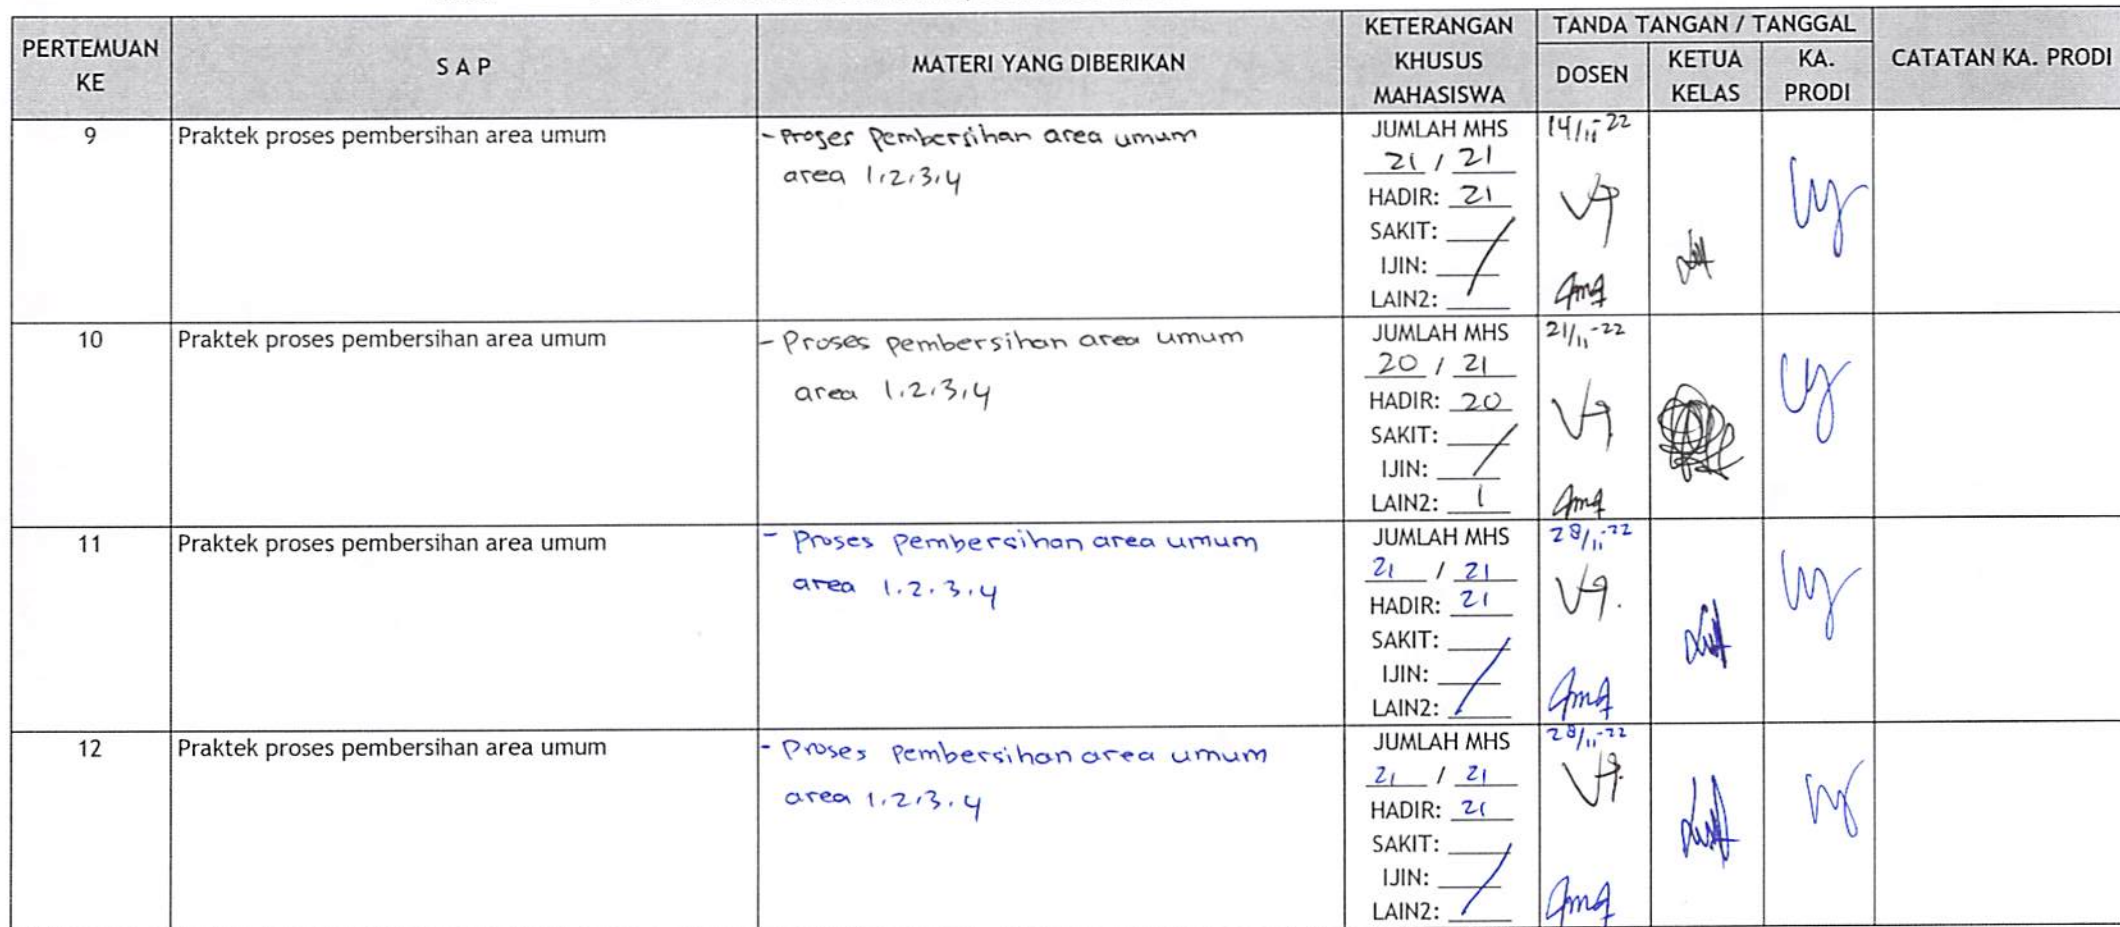 PERTEMUAN KE
S A P
MATERI YANG DIBERIKAN
KETERANGAN KHUSUS MAHASISWA
TANDA TANGAN / TANGGAL
DOSEN
KETUA KELAS
KA. PRODI
CATATAN KA. PRODI
9
Praktek proses pembersihan area umum
- Proses Pembersihan area umum
area 1,2,3,4
JUMLAH MHS
21 / 21
HADIR: 21
SAKIT:
IJIN:
LAIN2:
14/11-22
10
Praktek proses pembersihan area umum
- Proses pembersihan area umum
area 1,2,3,4
JUMLAH MHS
20 / 21
HADIR: 20
SAKIT:
IJIN:
LAIN2: 1
21/11-22
11
Praktek proses pembersihan area umum
- Proses pembersihan area umum
area 1.2.3.4
JUMLAH MHS
21 / 21
HADIR: 21
SAKIT:
IJIN:
LAIN2:
28/11-22
12
Praktek proses pembersihan area umum
- Proses pembersihan area umum
area 1,2,3,4
JUMLAH MHS
21 / 21
HADIR: 21
SAKIT:
IJIN:
LAIN2:
28/11-22